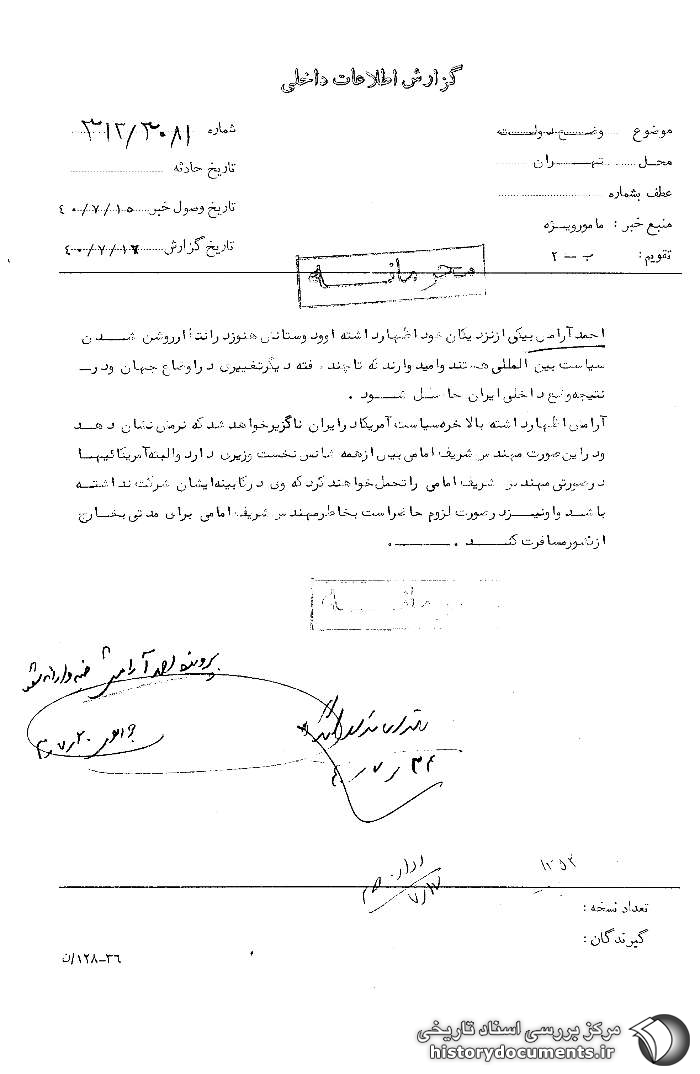 گزارش اطلاعات داخلی
موضوع وضع دولت
شماره ۳۱۲/۳۰۸۱
محل تهران
تاریخ حادثه
عطف بشماره
تاریخ وصول خبر ۴۰/۷/۱۵
منبع خبر : مامورویژه
تاریخ گزارش ۴۰/۷/۱۶
تقویم : ب - ۲
محرمانه
احمد آرامش بیکی از نزدیکان خود اظهار داشته او و دوستانش هنوز در انتظار روشن شدن
سیاست بین المللی هستند و امیدوارند که تا چند هفته دیگر تغییری در اوضاع جهان و در
نتیجه وضع داخلی ایران حاصل شود .
آرامش اظهار داشته بالاخره سیاست آمریکا در ایران ناگزیر خواهد شد که نرمش نشان دهد
و در این صورت مهندس شریف امامی بیش از همه شانس نخست وزیری دارد و البته آمریکائیها
در صورتی مهندس شریف امامی را تحمل خواهند کرد که وی در کابینه ایشان شرکت نداشته
باشد و او نیز در صورت لزوم حاضر است بخاطر مهندس شریف امامی برای مدتی بخارج
از کشور مسافرت کند .
محرمانه
پرونده احمد آرامش
۱۲۵۳
تعداد نسخه :
گیرندگان :
۱۲۸-۳۶/ن
مرکز بررسی اسناد تاریخی
historydocuments.ir